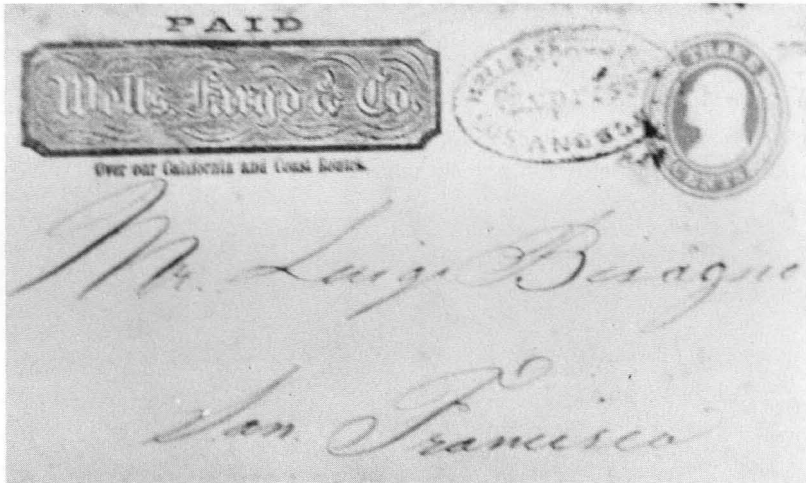 PAID
Wells, Fargo & Co.
Over our California and Coast Routes.
WELLS, FARGO & CO
Express
LOS ANGELES
Mr. Luigi
San Francisco